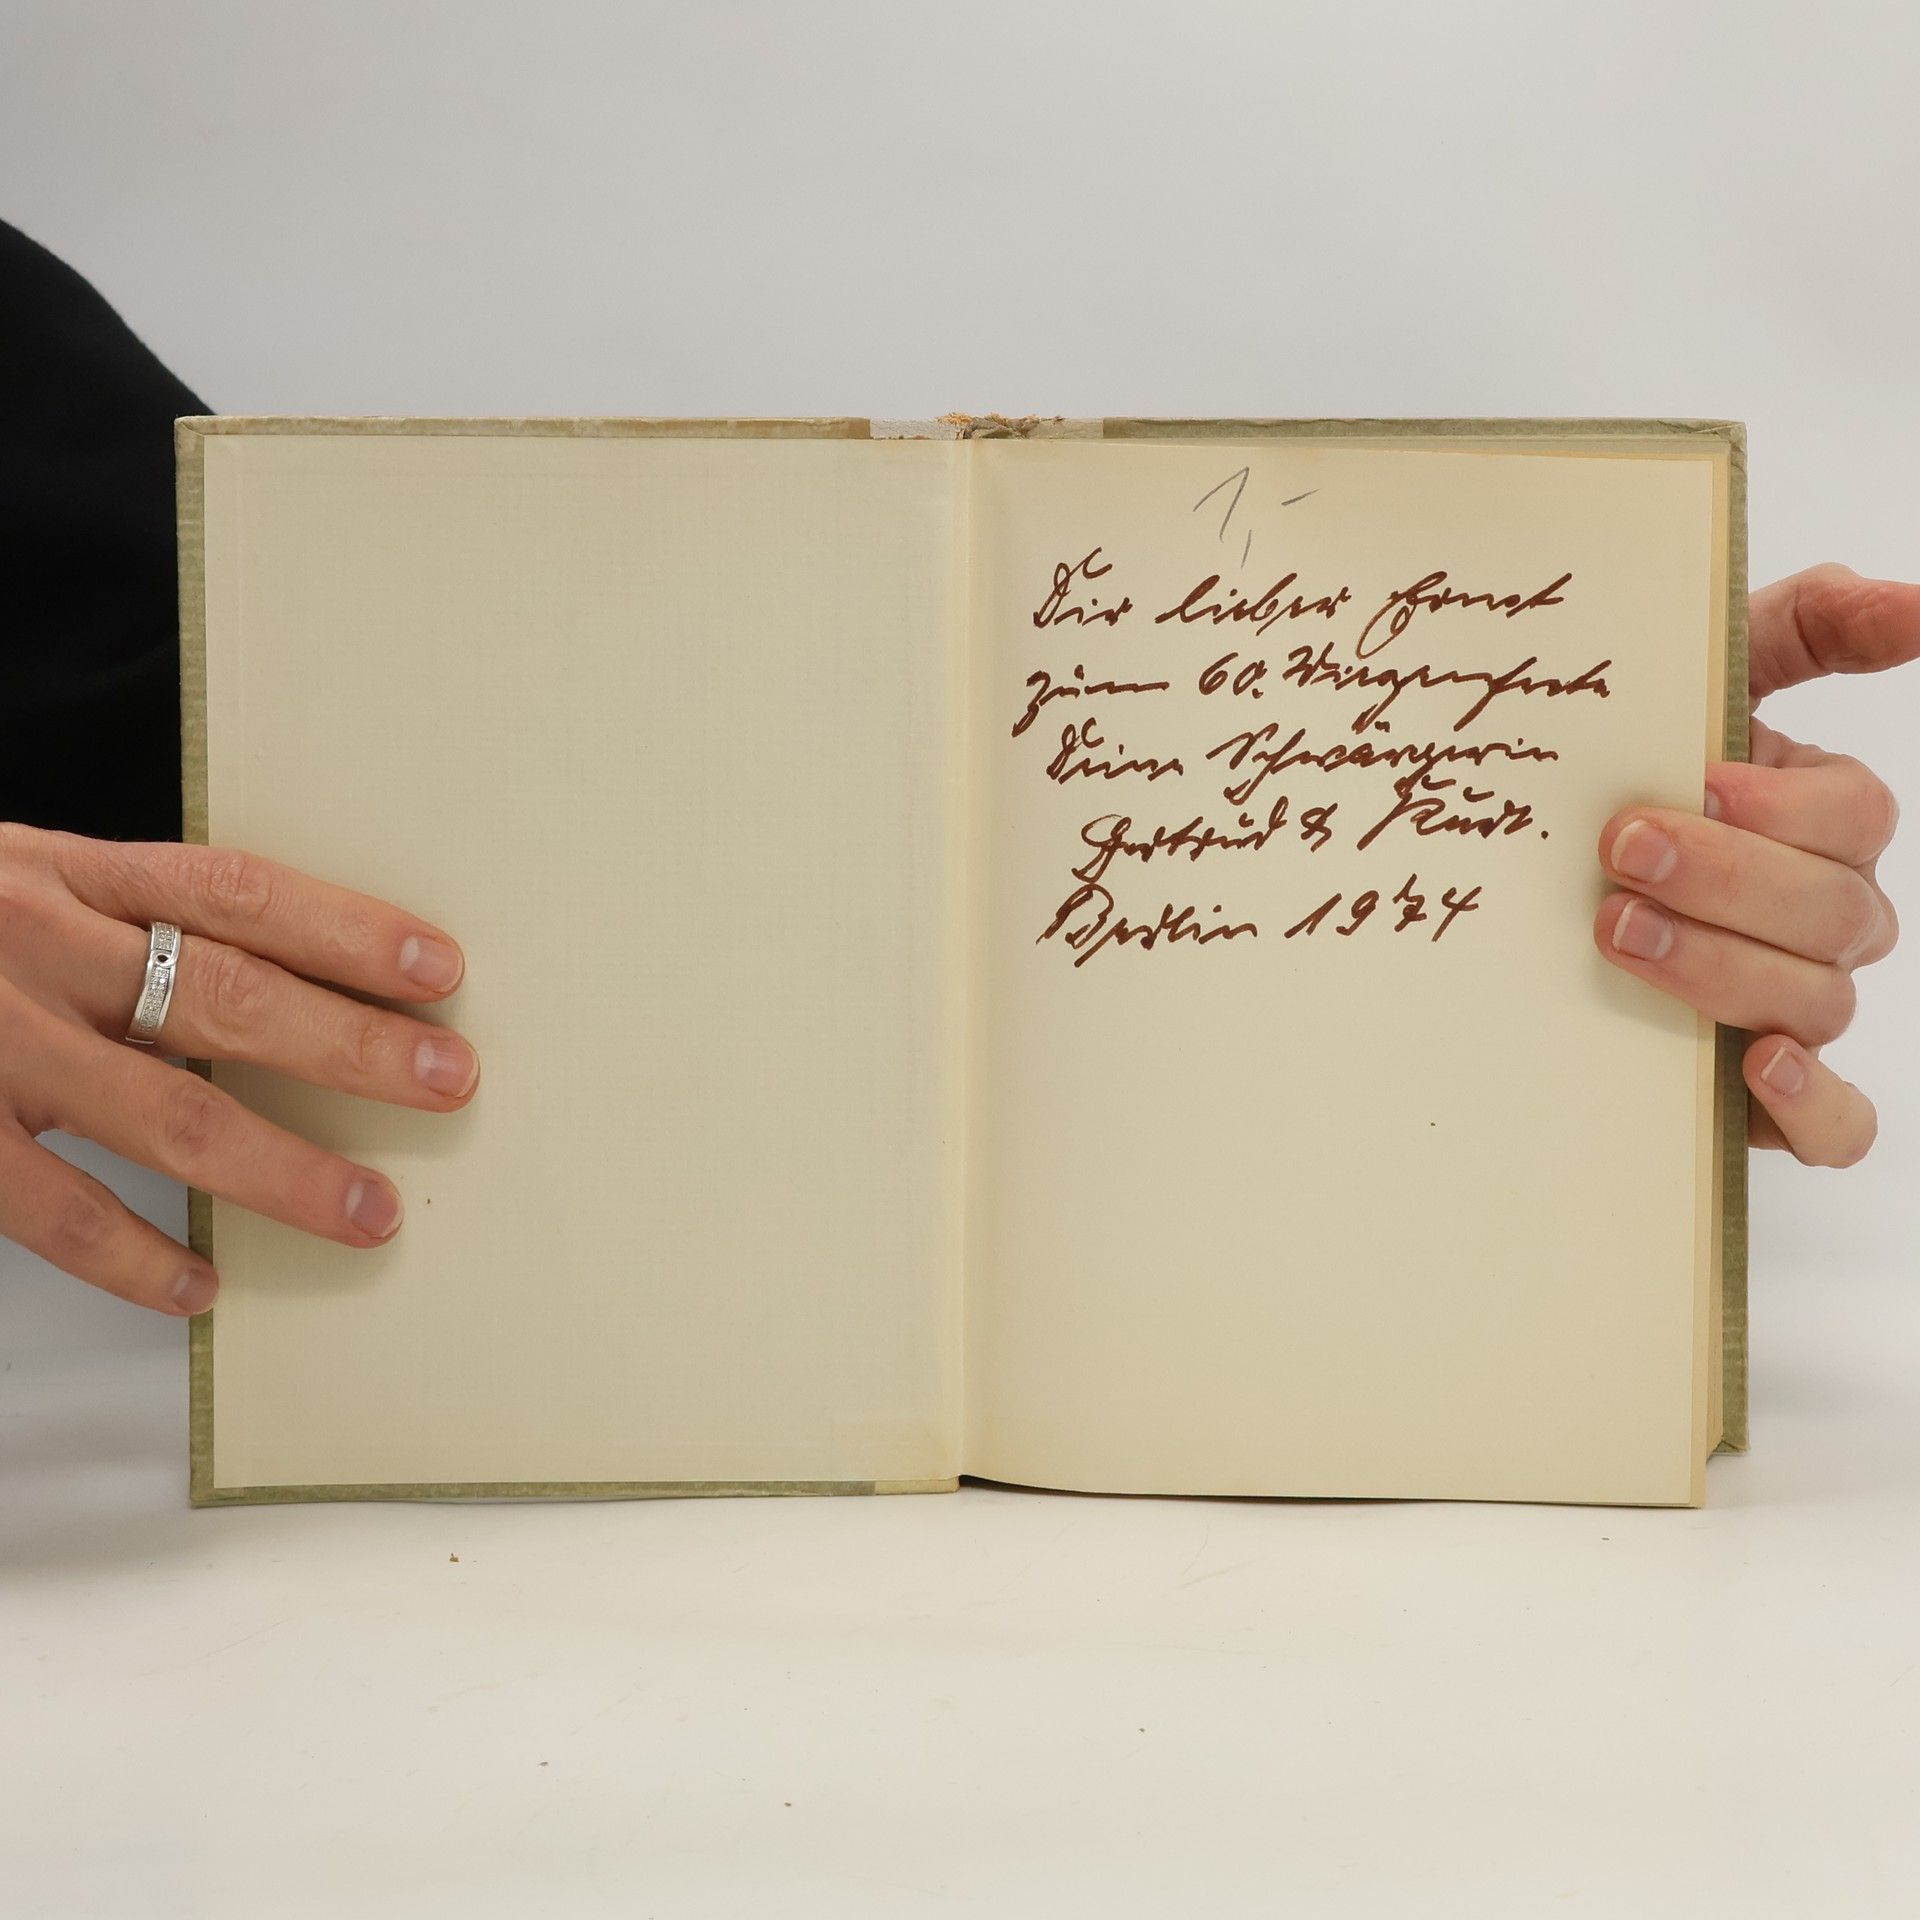 1,-
Dir lieber Ernst
zum 60. Wiegenfeste
Deine Schwägerin
Gertrud & Kurt.
Berlin 1974